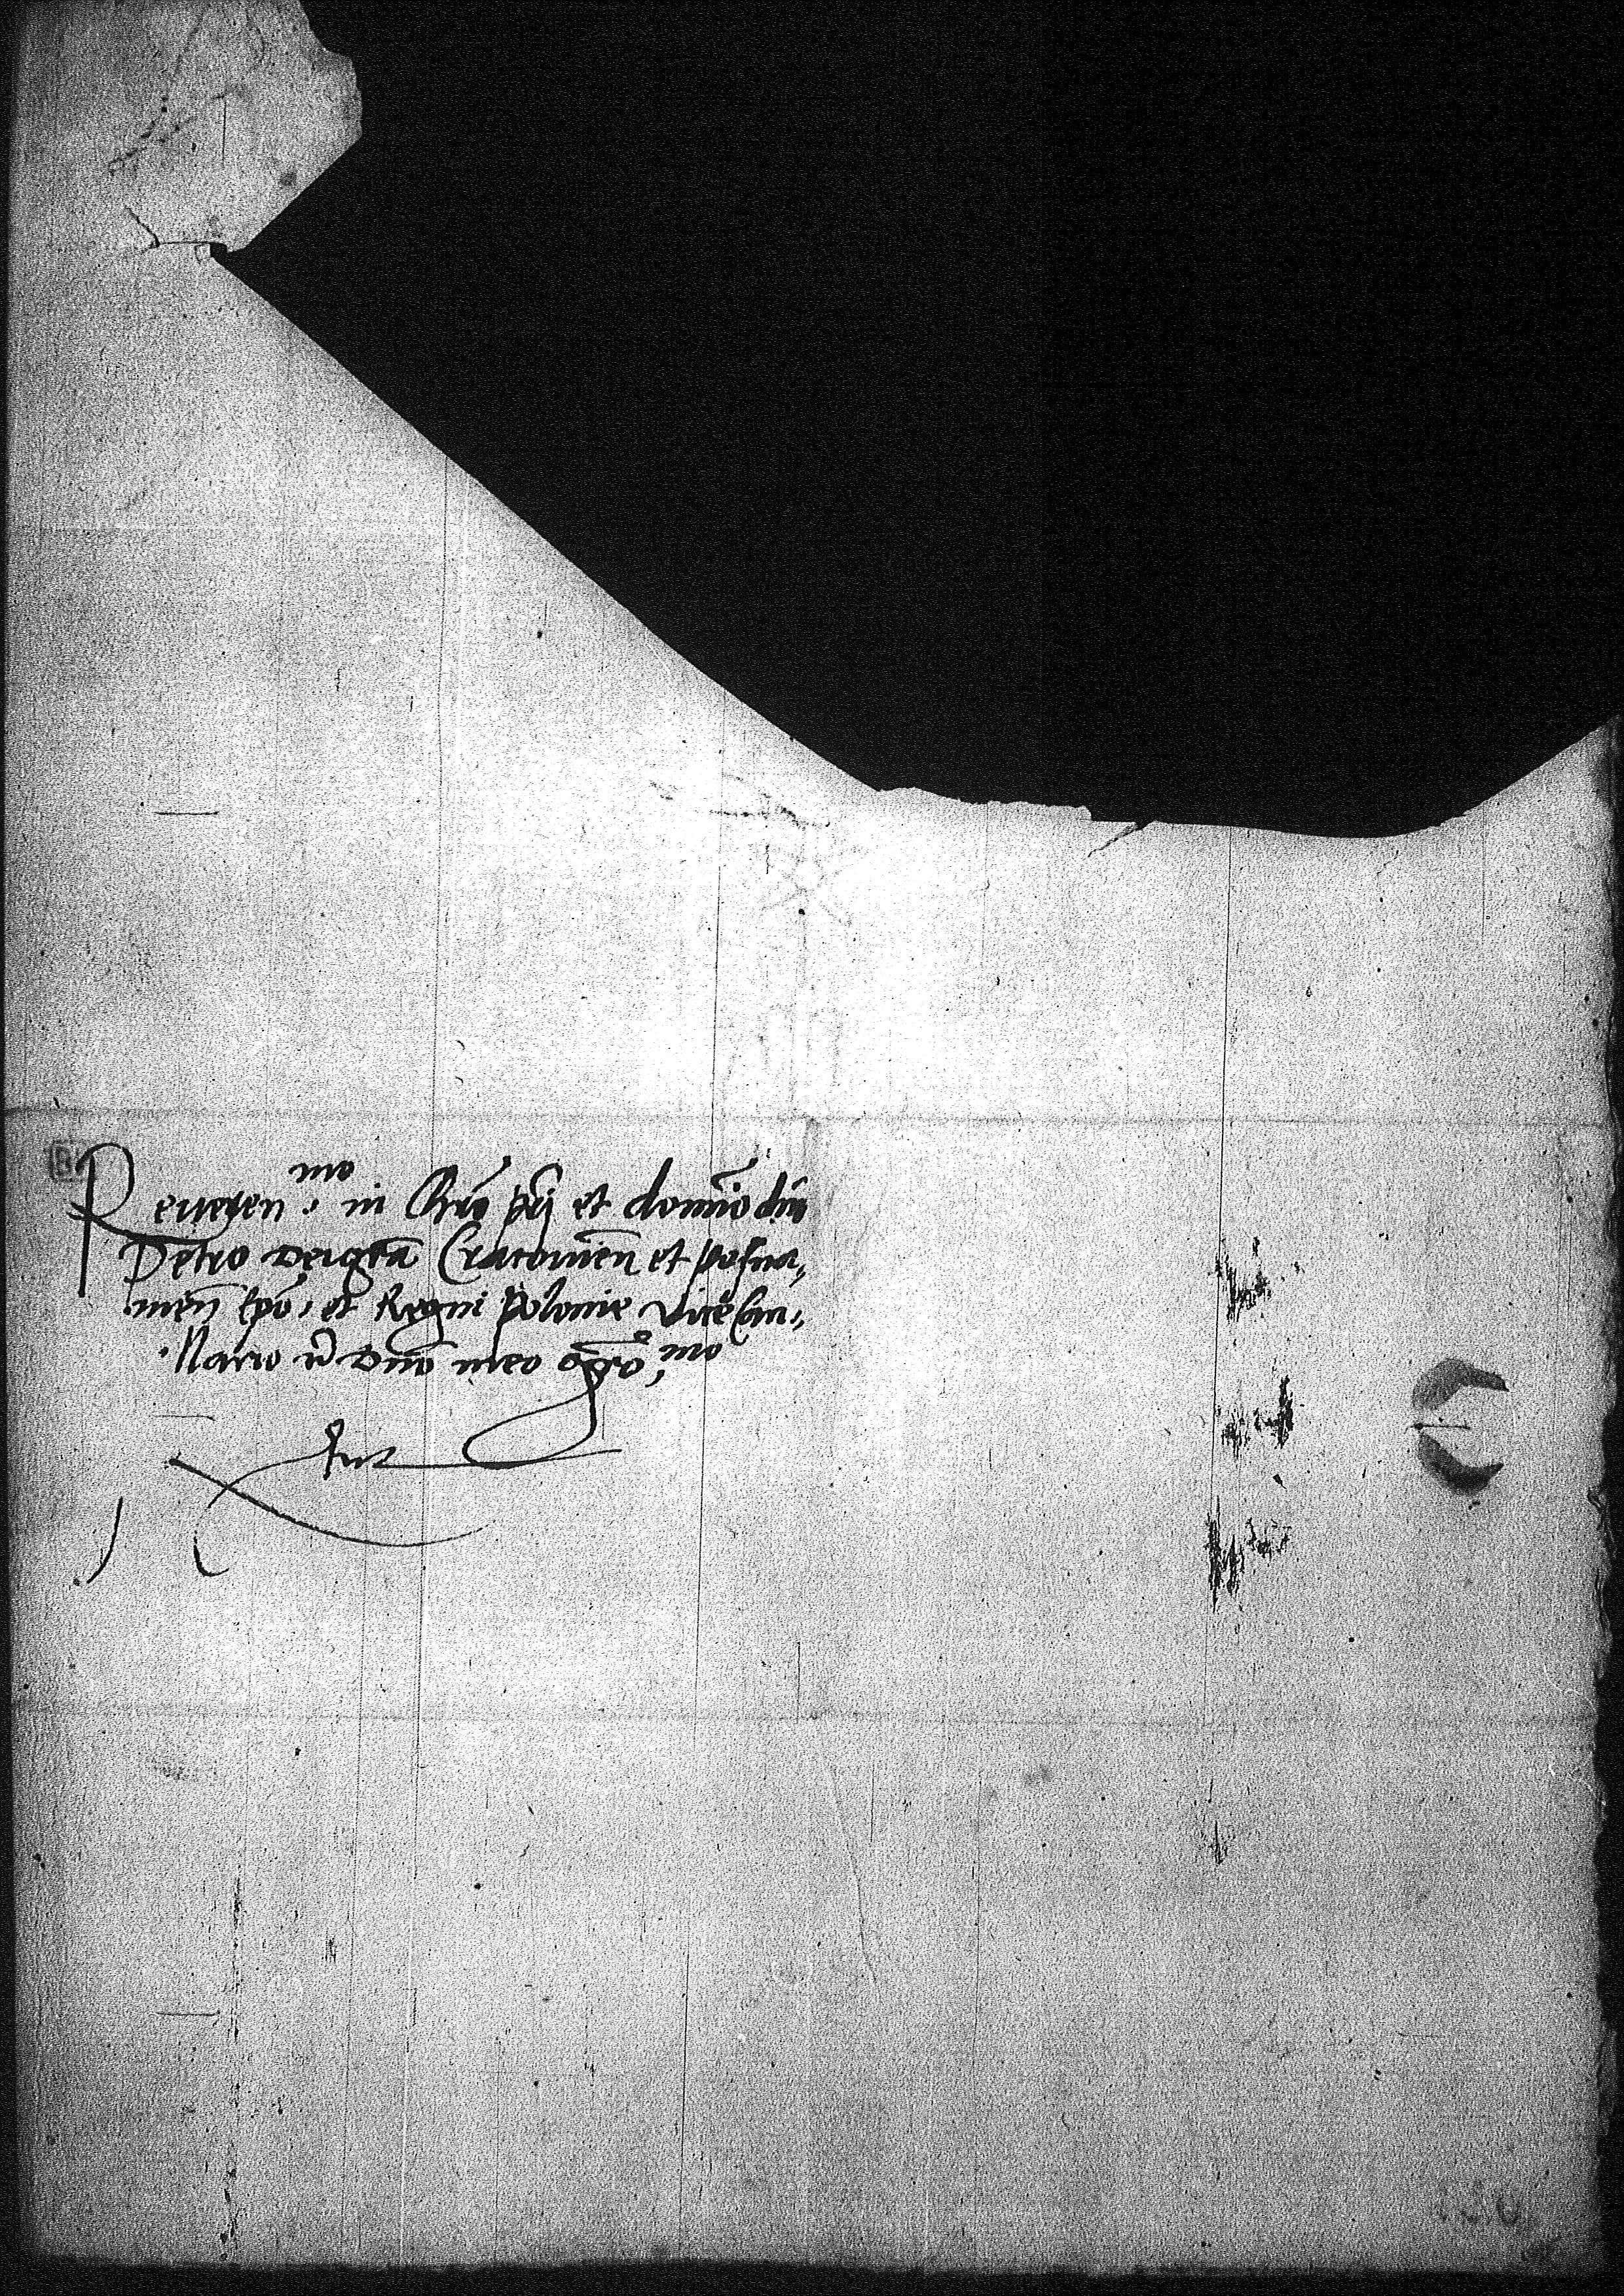 Reueren^mo in Chrõ prj et domĩo dño
Petro Dei gr̃a Cracouieñ et posna,,
nieñ ep̃o, et Regni Polonie Vice Can,,
llario ... Dño meo ...^mo